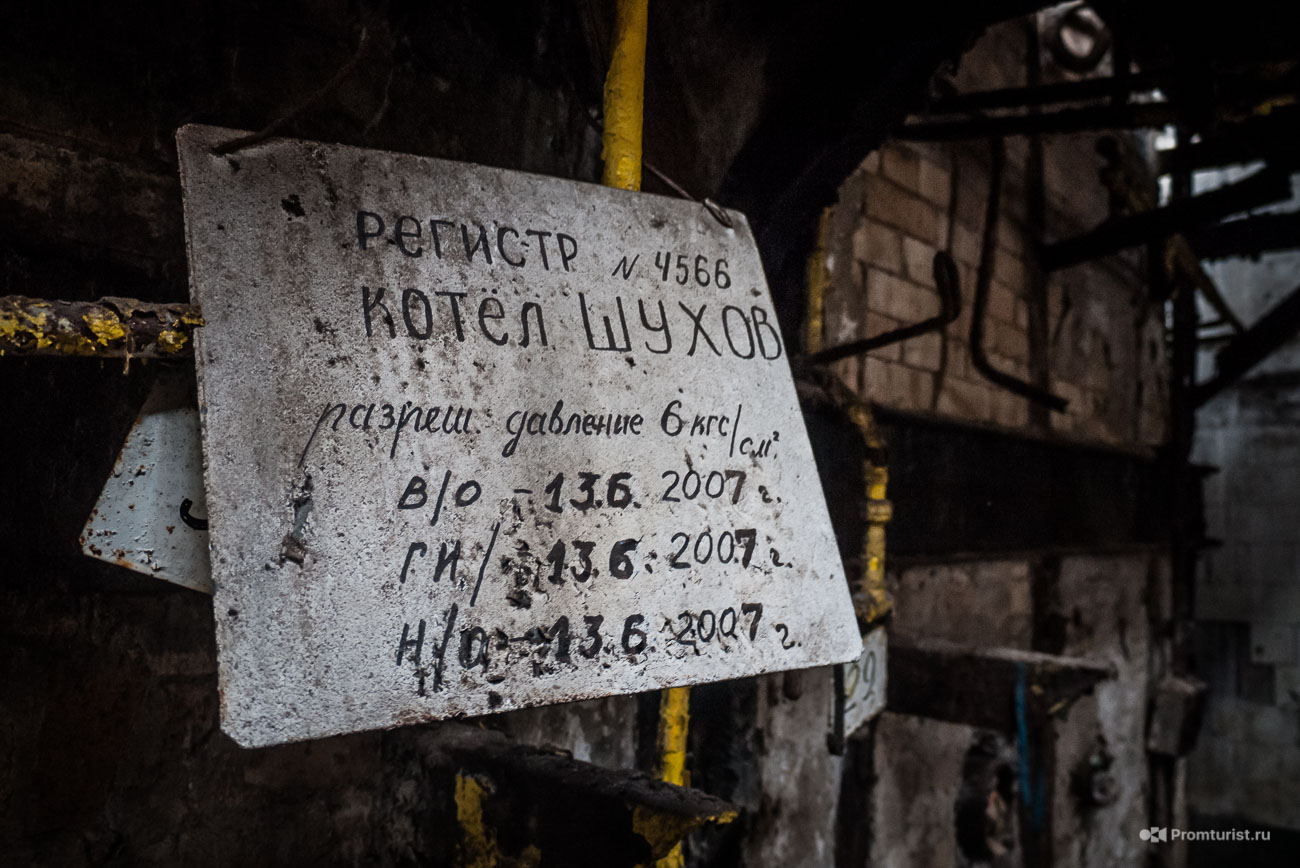 РЕГИСТР N 4566
КОТЁЛ ШУХОВ
разреш. давление 6 кгс/см²
В/О - 13.6. 2007 г.
ГИ/ - 13.6. 2007 г.
Н/О - 13.6. 2007 г.
22
Promturist.ru